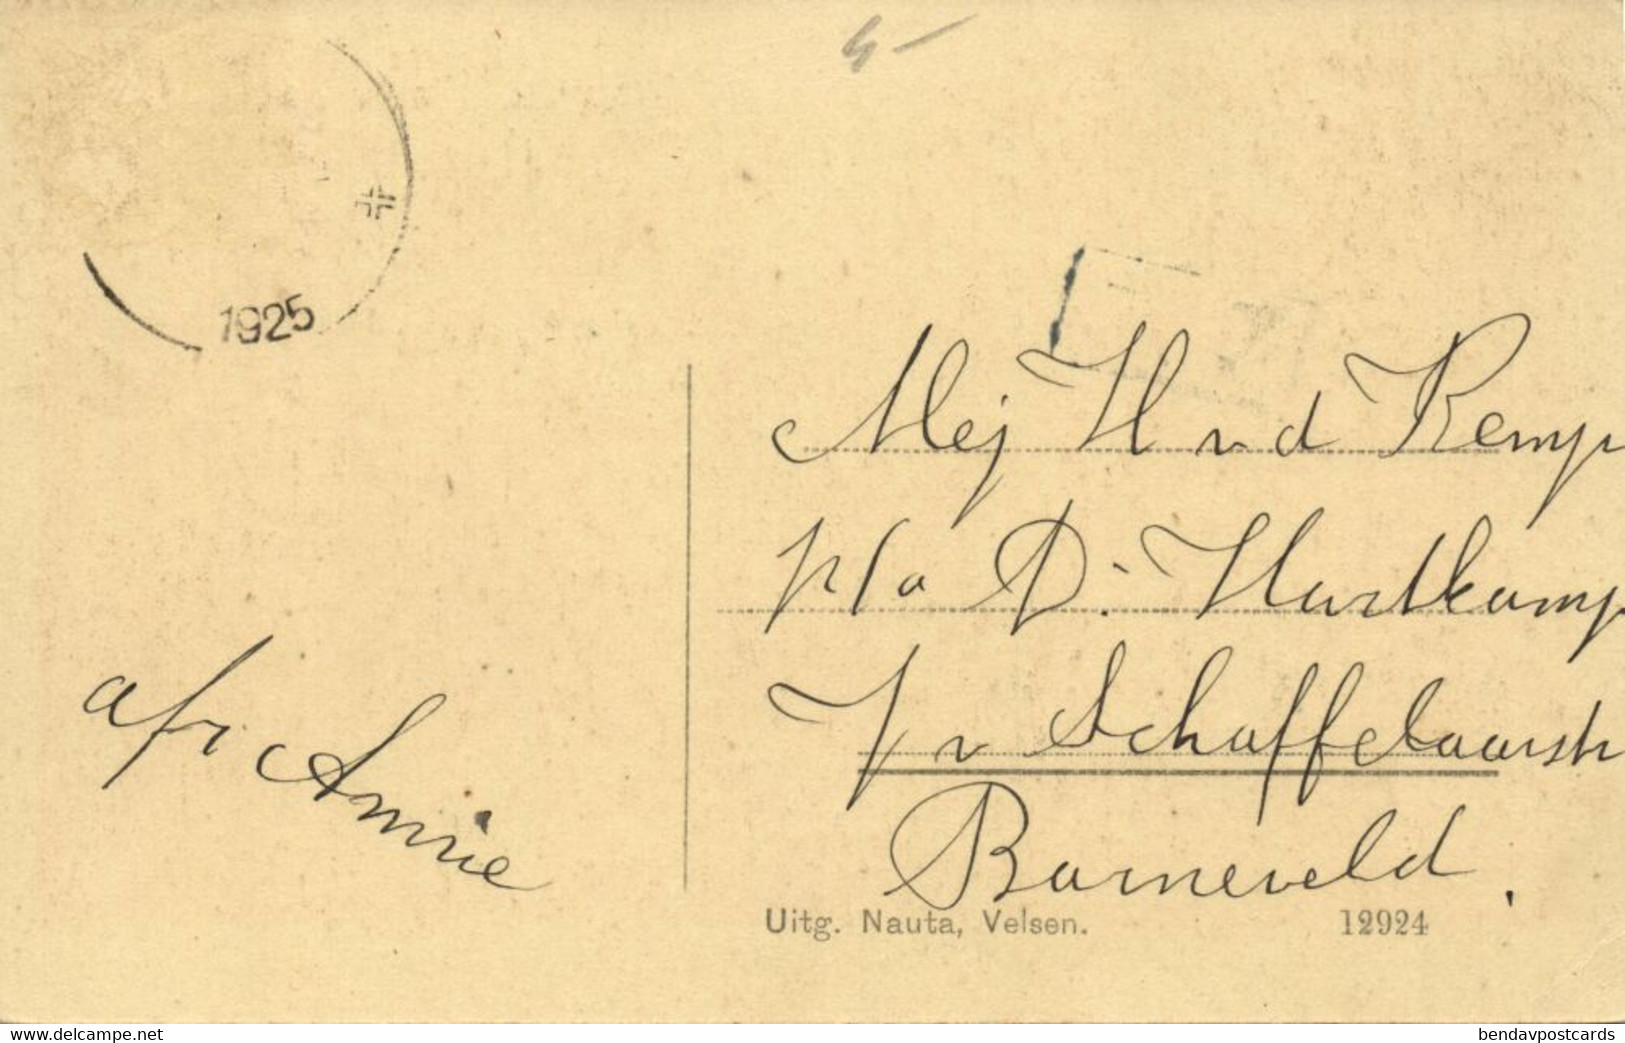 4 –
1925
Mej H v d Kemp
p/a D. Hardkamp
J v Schaffelaarstr
Barneveld.
afz Annie
Uitg. Nauta, Velsen. 12924
www.delcampe.net bendavpostcards